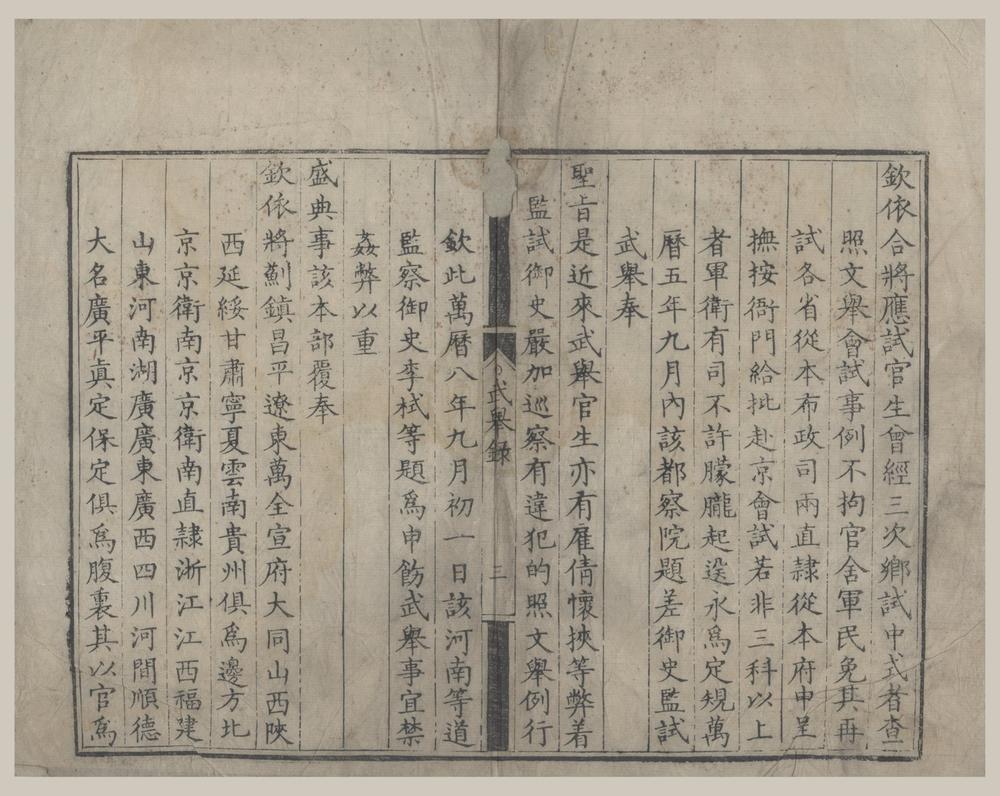 欽依合將應試官生曾經三次鄉試中式者查
照文舉會試事例不拘官舍軍民免其再
試各省從本布政司兩直隸從本府申呈
撫按衙門給批赴京會試若非三科以上
者軍衛有司不許朦朧起送永爲定規萬
曆五年九月內該都察院題差御史監試
武舉奉
聖旨是近來武舉官生亦有雇倩懷挾等弊着
監試御史嚴加巡察有違犯的照文舉例行
武舉錄
三
欽此萬曆八年九月初一日該河南等道
監察御史李栻等題爲申飭武舉事宜禁
姦弊以重
盛典事該本部覆奉
欽依將薊鎮昌平遼東萬全宣府大同山西陝
西延綏甘肅寧夏雲南貴州俱爲邊方北
京京衛南京京衛南直隸浙江江西福建
山東河南湖廣廣東廣西四川河間順德
大名廣平真定保定俱爲腹裏其以官爲